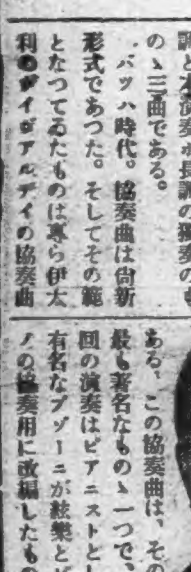 の丶三曲である。
バツハ時代。協奏曲は尙新
形式であつた。そしてその範
となつてゐたものは專ら伊太
利のヴイヴアルデイの協奏曲
ある、この協奏曲は、その
最も著名なもの丶一つで、
回の演奏はピアニストとし
有名なブゾーニが絃樂とピ
ノの協奏用に改編したもの